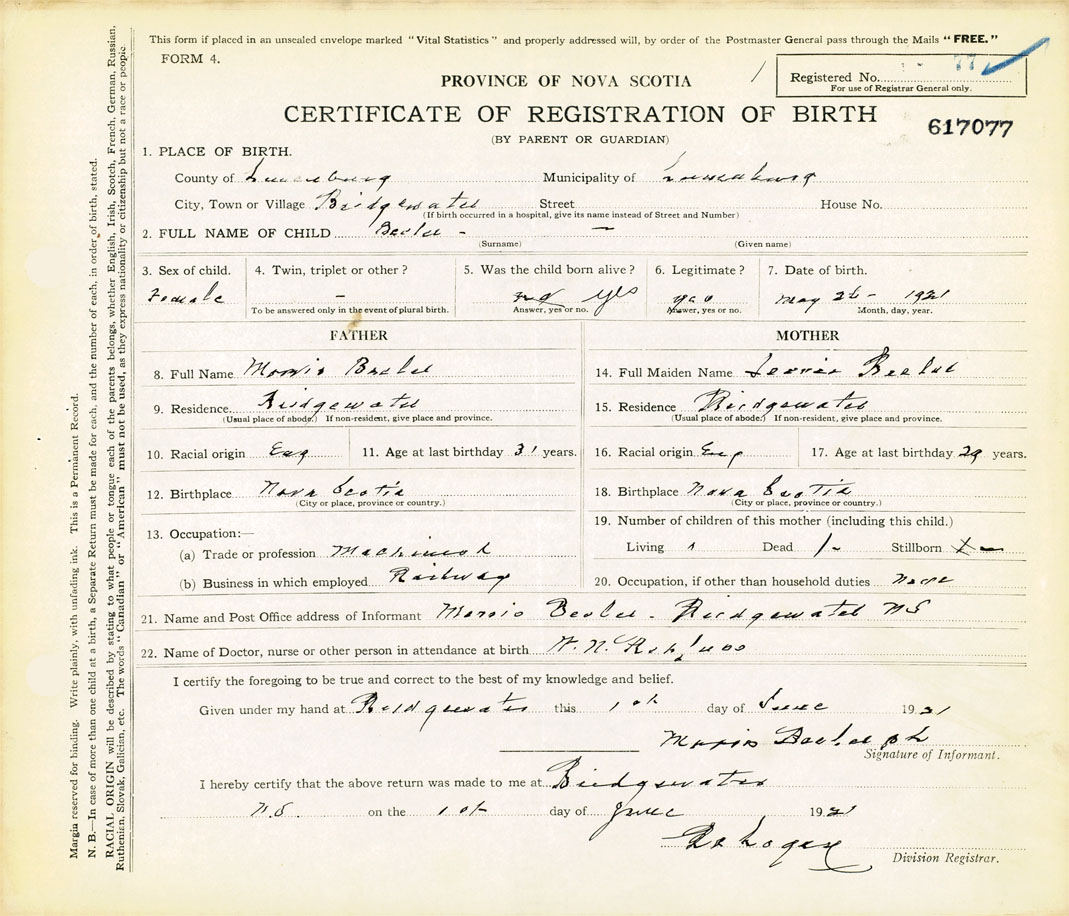 This form if placed in an unsealed envelope marked "Vital Statistics" and properly addressed will, by order of the Postmaster General pass through the Mails "FREE."
FORM 4.
Registered No. 77
For use of Registrar General only.
PROVINCE OF NOVA SCOTIA
CERTIFICATE OF REGISTRATION OF BIRTH
617077
(BY PARENT OR GUARDIAN)
1. PLACE OF BIRTH.
County of Lunenburg Municipality of Lunenburg
City, Town or Village Bridgewater Street House No.
(If birth occurred in a hospital, give its name instead of Street and Number)
2. FULL NAME OF CHILD Beeler - —
(Surname) (Given name)
3. Sex of child. 4. Twin, triplet or other? 5. Was the child born alive? 6. Legitimate? 7. Date of birth.
Female - yes yes May 26 - 1921
To be answered only in the event of plural birth. Answer, yes or no. Answer, yes or no. Month, day, year.
FATHER MOTHER
8. Full Name Morris Beeler 14. Full Maiden Name Beeler
9. Residence Bridgewater 15. Residence Bridgewater
(Usual place of abode.) If non-resident, give place and province. (Usual place of abode.) If non-resident, give place and province.
10. Racial origin Eng 11. Age at last birthday 31 years. 16. Racial origin Eng 17. Age at last birthday 29 years.
12. Birthplace Nova Scotia 18. Birthplace Nova Scotia
(City or place, province or country.) (City or place, province or country.)
13. Occupation:— 19. Number of children of this mother (including this child.)
(a) Trade or profession Machinist Living 1 Dead 1- Stillborn
(b) Business in which employed Railway 20. Occupation, if other than household duties none
21. Name and Post Office address of Informant Morris Beeler - Bridgewater NS
22. Name of Doctor, nurse or other person in attendance at birth
I certify the foregoing to be true and correct to the best of my knowledge and belief.
Given under my hand at Bridgewater this 1st day of June 1921
Morris Beeler
Signature of Informant.
I hereby certify that the above return was made to me at Bridgewater
N.S on the 1st day of June 1921
Logan
Division Registrar.
Margin reserved for binding. Write plainly, with unfading ink. This is a Permanent Record.
N. B.—In case of more than one child at a birth, a Separate Return must be made for each, and the number of each, in order of birth, stated.
RACIAL ORIGIN will be described by stating to what people or tongue each of the parents belongs, whether English, Irish, Scotch, French, German, Russian,
Ruthenian, Slovak, Galician, etc. The words "Canadian" or "American" must not be used, as they express nationality or citizenship but not a race or people